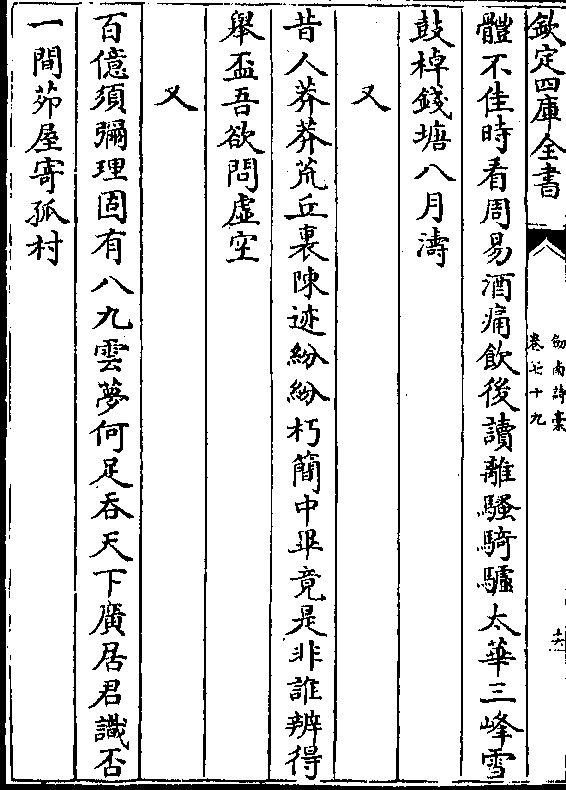 欽定四庫全書
劒南詩稾
卷七十九
十六
體不佳時看周易酒痛飲後讀離騷騎驢太華三峰雪
鼓棹錢塘八月濤
又
昔人莽莽荒丘裏陳迹紛紛朽簡中畢竟是非誰辨得
舉盃吾欲問虛空
又
百億須彌理固有八九雲夢何足吞天下廣居君識否
一間茆屋寄孤村